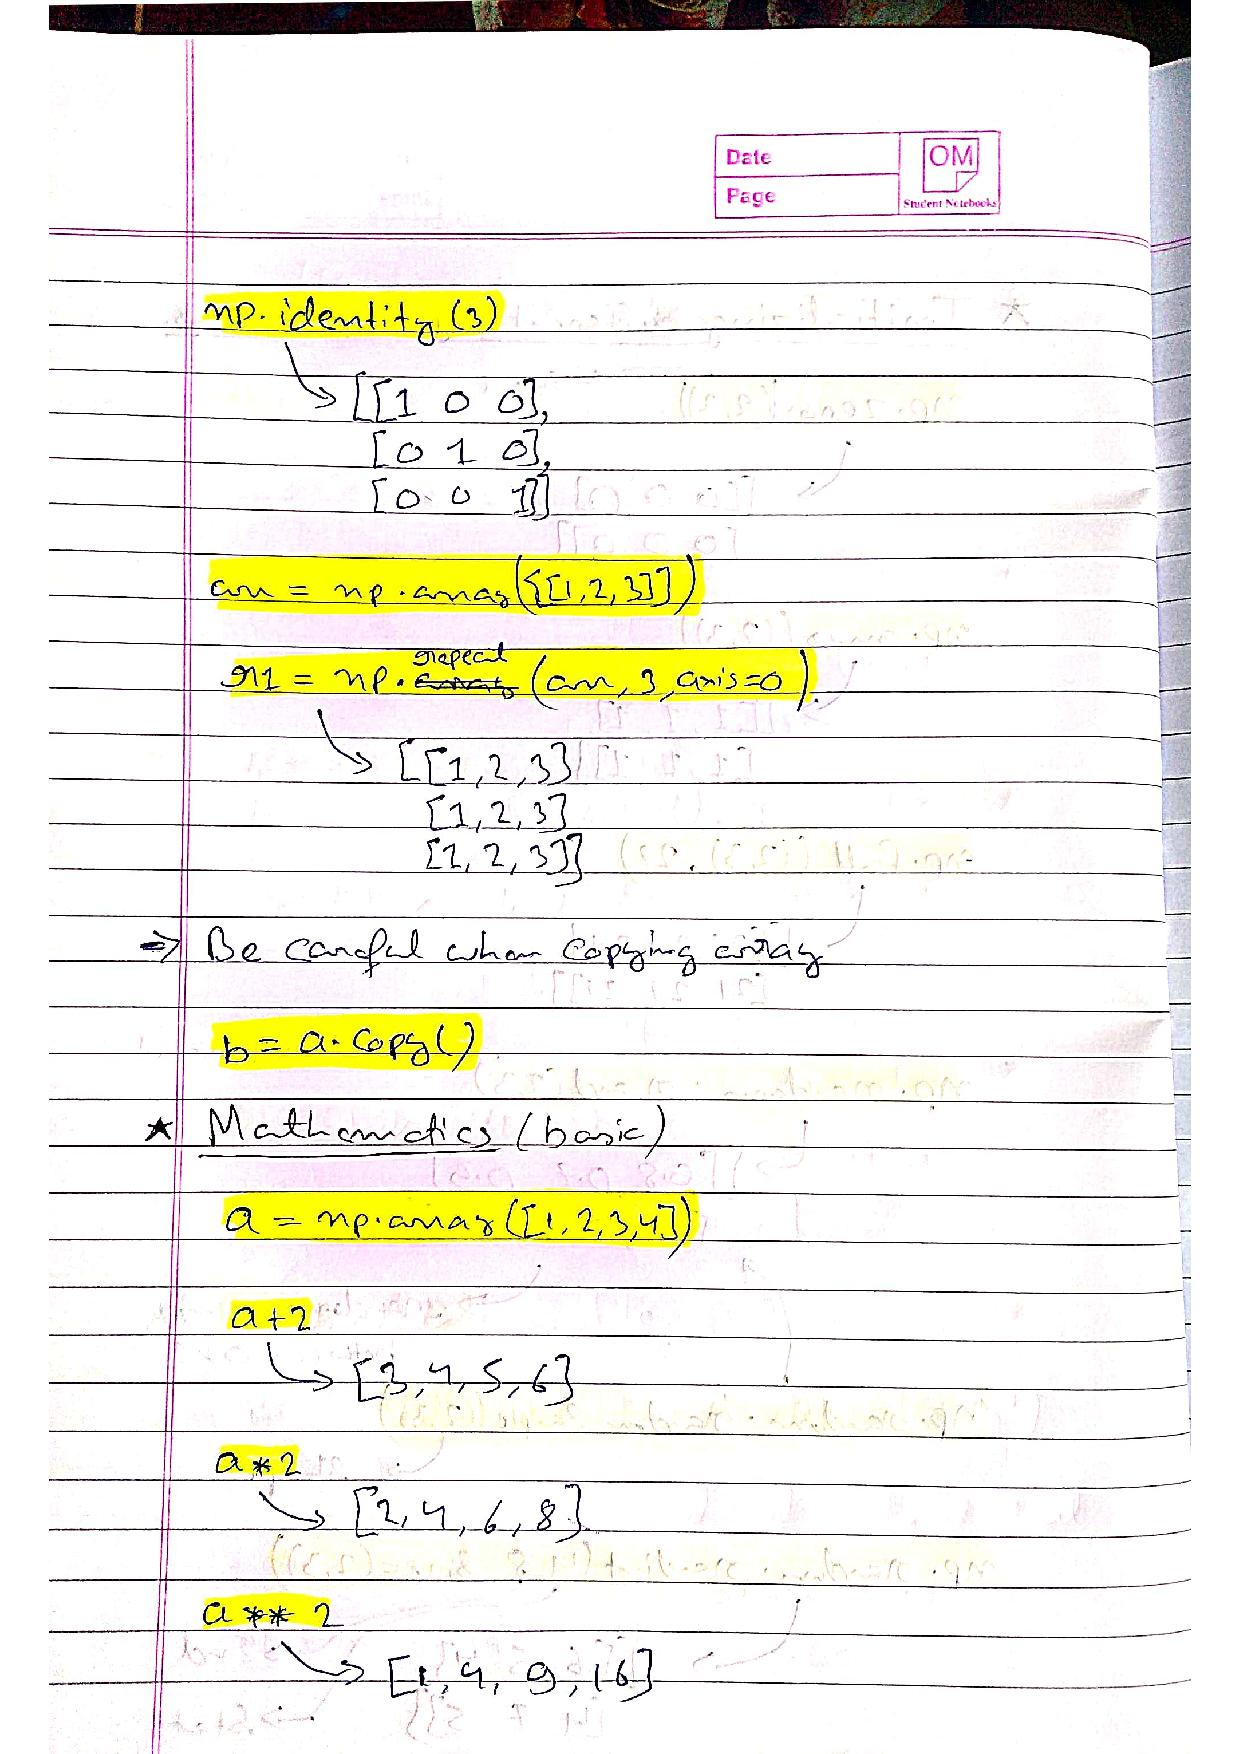 Date
Page
OM
Student Notebooks
np.identity(3)
[[1 0 0],
[0 1 0],
[0 0 1]]
arr = np.array([[1,2,3]])
r1 = np.repeat(arr, 3, axis=0).
[[1,2,3]
[1,2,3]
[1,2,3]]
⇒ Be careful when copying array
b = a.copy()
★ Mathematics (basic)
a = np.array([1,2,3,4])
a+2
[3,4,5,6]
a*2
[2,4,6,8]
a**2
[1,4,9,16]